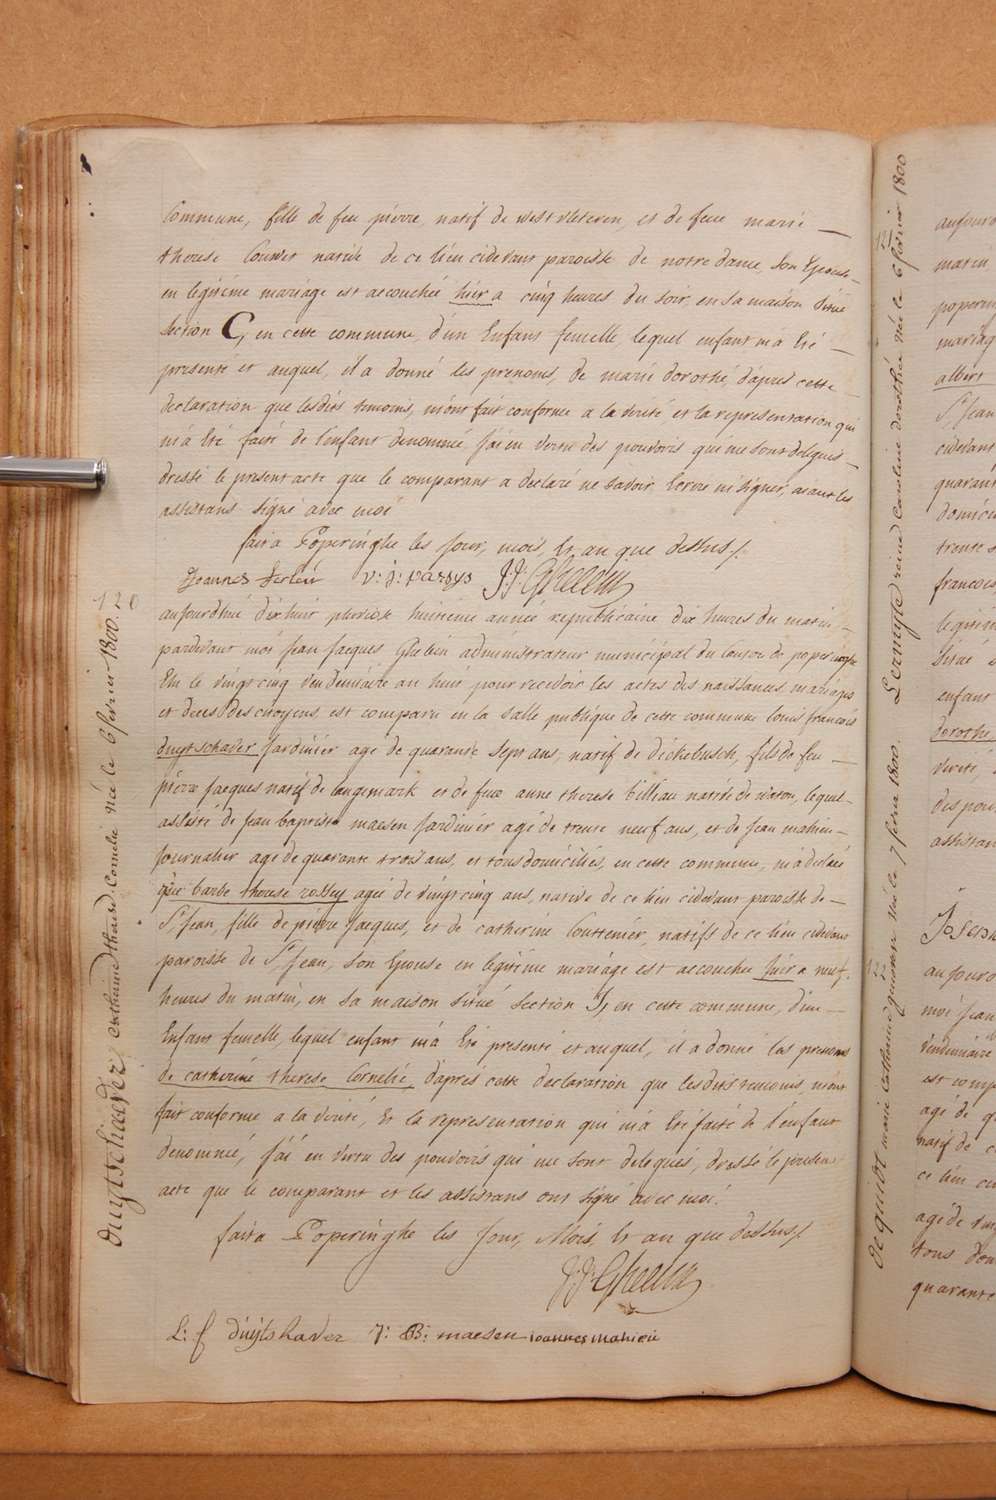 Commune, fille de feu pierre, natif de westvleteren, et de feue marie
therese Couwet native de ce lieu cidevant paroisse de notre dame, son Epouse
en legitime mariage est accouchée hier a cinq heures du soir en sa maison Situé
Section C, en cette commune, d'un Enfant femelle, lequel enfant m'a Eté
presenté et auquel, il a donné les prenoms, de marie dorothé, d'apres cette
declaration que lesdits temoins, m'ont fait conforme a la verité, et la representation qui
m'a Eté faite de l'enfant denommé, j'ai en vertu des pouvoirs qui me sont delegués
dressé le present acte que le comparant a declaré ne savoir Ecrire ni signer, ayant les
assistans signé avec moi
fait a Poperinghe les jour, mois, Et an que dessus /.
Joannes v: j: parsys J: J: Gheelin
120
aujourdhui dix huit pluviose huitieme année republicaine dix heures du matin
pardevant moi jean jacques Gheelein administrateur municipal du canton de poperinghe
Elu le vingt cinq vendemiaire an huit pour recevoir les actes des naissances, mariages
et deces des citoyens, est comparu en la salle publique de cette commune louis francois
duytschaver jardinier agé de quarante sept ans, natif de dickebusch, fils de feu
pierre jacques natif de langemark et de feue anne therese billiau native de waton, lequel
assisté de jean baptiste maesen jardinier agé de trente neuf ans, et de jean mahieu
journalier agé de quarante trois ans, et tous domiciliés, en cette commune, m'a declaré
que barbe therese rossey agée de vingt cinq ans, native de ce lieu cidevant paroisse de
St. jean, fille de pierre jacques, et de catherine Couttenier, natifs de ce lieu cidevant
paroisse de St. jean, son Epouse en legitime mariage est accouchée hier a neuf
heures du matin, en sa maison situé section I, en cette commune, d'un
Enfant femelle, lequel enfant m'a Eté presenté et auquel, il a donné les prenoms
de catherine therese Cornelie, d'après cette declaration que lesdits temoins, m'ont
fait conforme a la verité, Et la representation qui m'a Eté faite de l'enfant
denommé, j'ai en vertu des pouvoirs qui me sont delegués, dressé le present
acte que le comparant et les assistans ont signé avec moi.
fait a Poperinghe les jour, Mois, Et an que dessus /.
J: J: Gheelin
L: f duijtshaver J: B: maesen ioannes mahieu
duytschaever catharine therese Cornelie née le 6 fevrier 1800.
121
Lermyte reine caroline dorothée née le 6 fevrier 1800
122
dequidt marie catharine née le 7 fevrier 1800.
aujourd
matin,
poperin
mariag
albert
St. jean
cidevant
quarant
domici
trente
francois
legitim
Situé
enfant
dorothe
verité,
des pou
assistan
aujourd
moi jean
vendemiaire
est comp
agé de q
natif de
ce lieu ci
agé de
tous dom
quarante